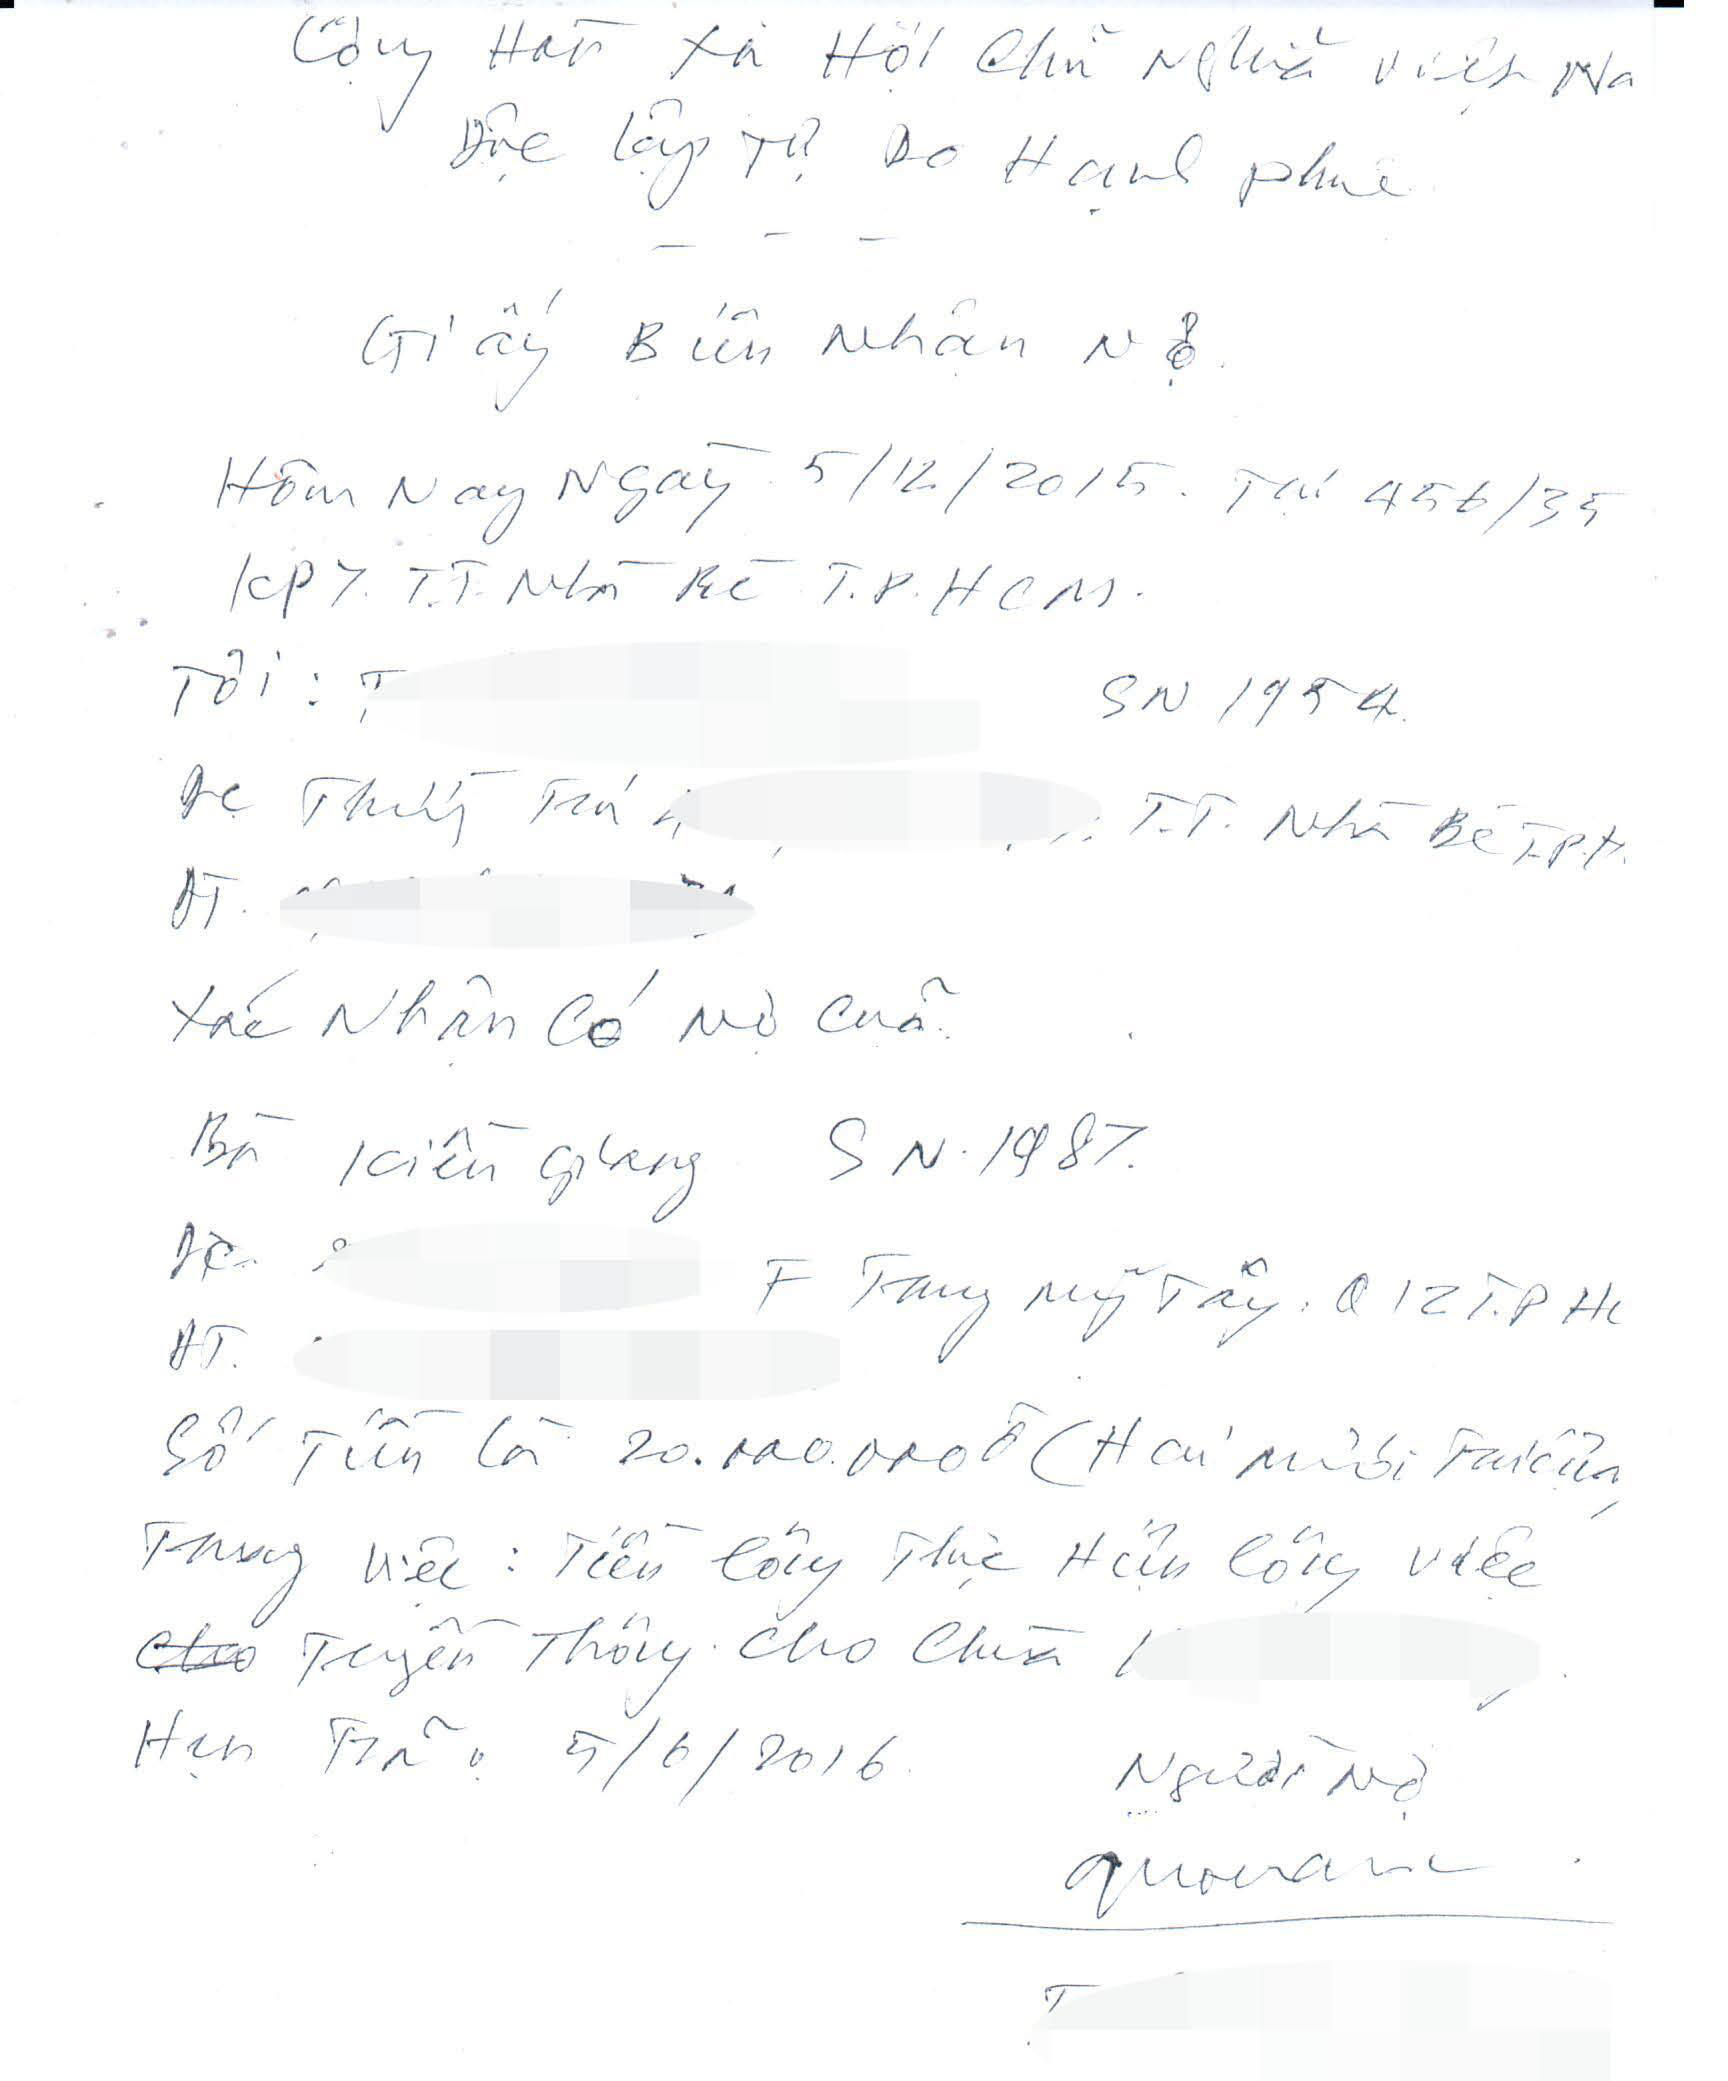 Cộng Hoà Xã Hội Chủ Nghĩa Việt Na
Độc lập Tự Do Hạnh phúc
- - -
Giấy Biên Nhận Nợ.
Hôm Nay Ngày 5/12/2015. Tại 456/35
KP7. T.T. Nhà Bè T.P. HCM.
Tôi : T SN 1954.
ĐC Thường Trú T.T. Nhà Bè T.P.H.
ĐT.
Xác Nhận Có Nợ Của.
Bà Kiều Giang SN. 1987.
ĐC. F Trung Mỹ Tây. Q12 T.P HC
ĐT.
Số Tiền là 20.000.000đ (Hai Mươi Triệu,
Trong việc : Tiền Công Thực Hiện Công việc
Cho Truyền Thông. Cho Chùa
Hạn Trả : 5/6/2016.
Người Nợ
T